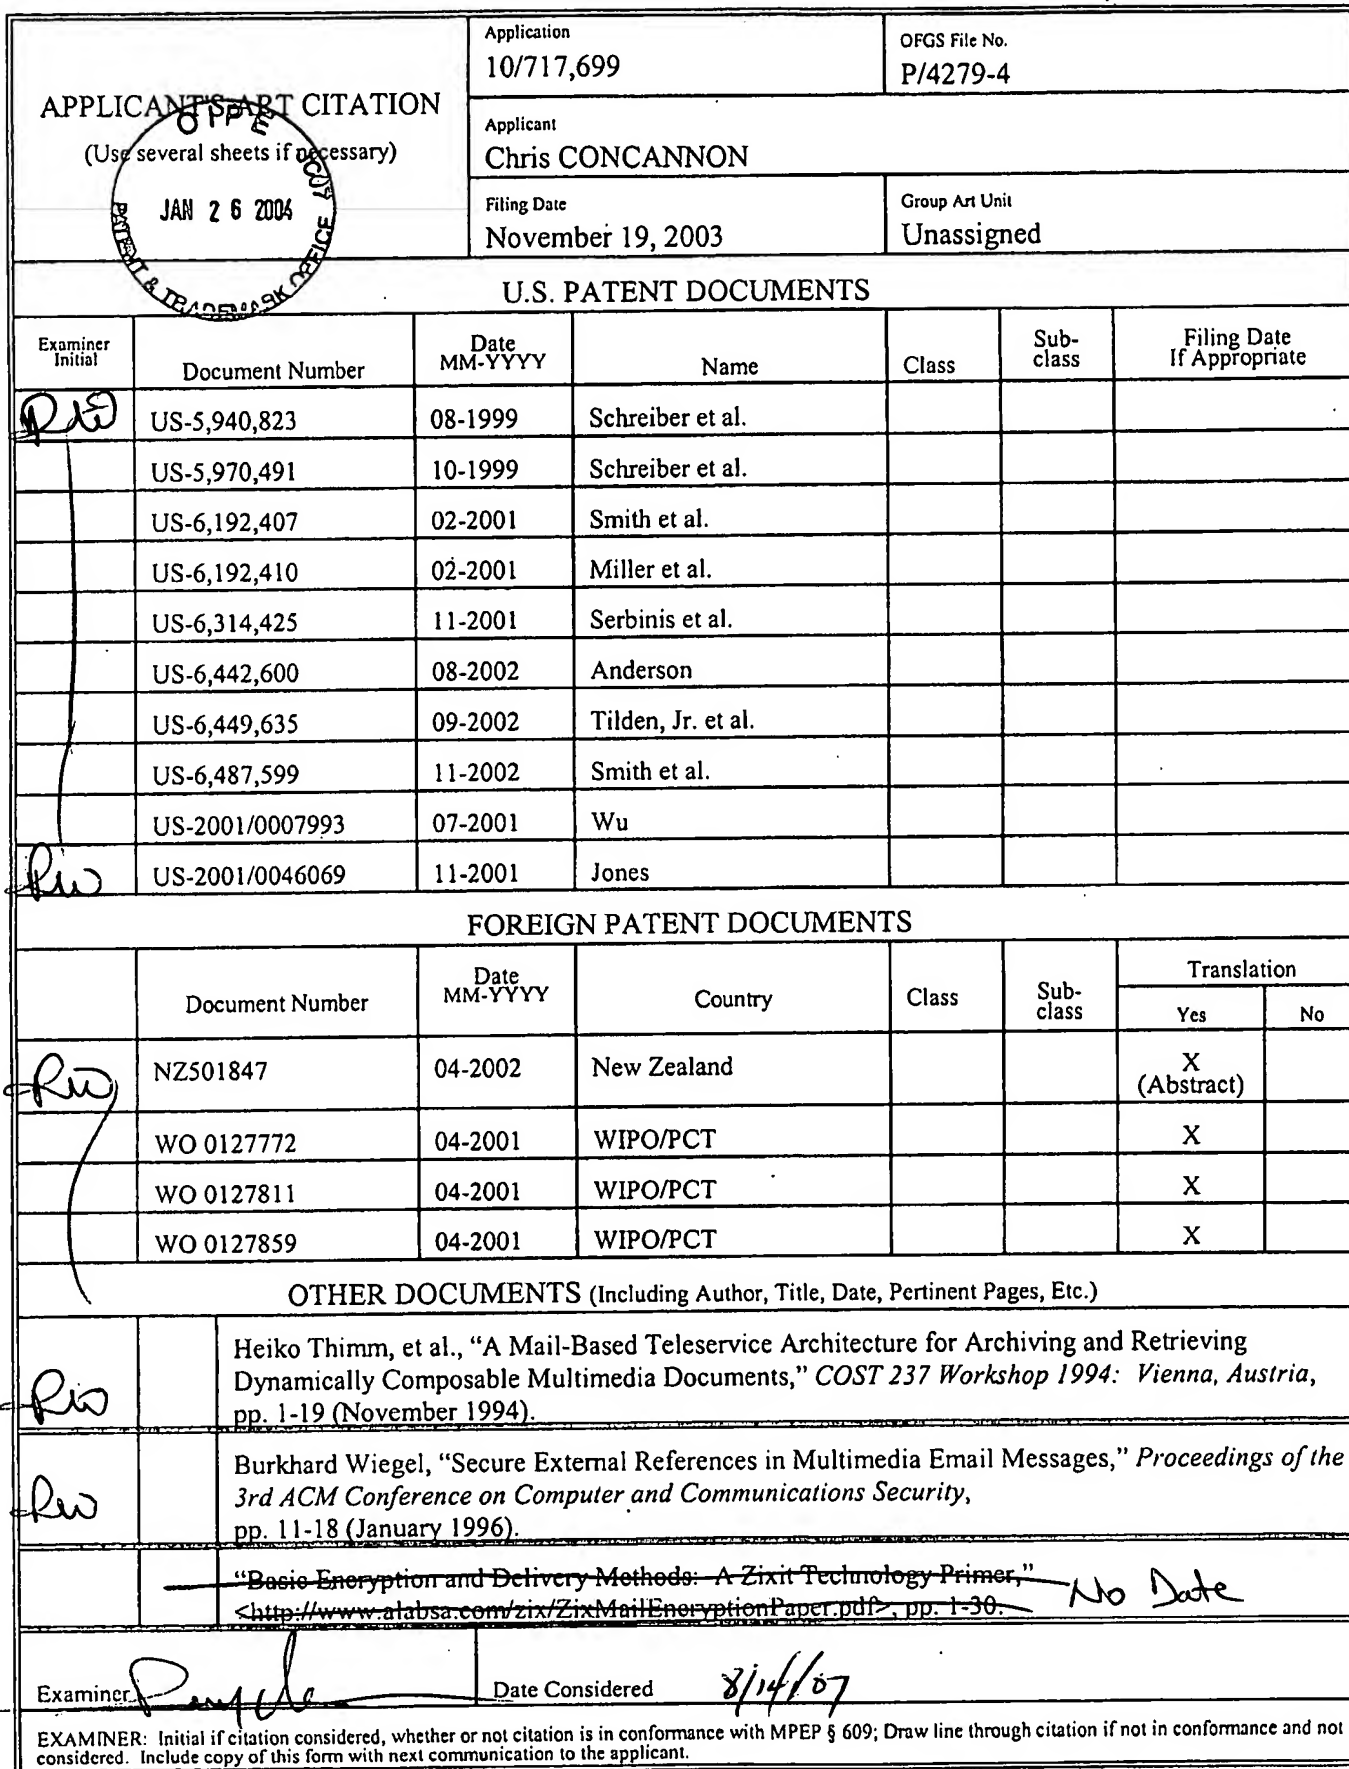 APPLICANT'S ART CITATION
(Use several sheets if necessary)
OIPE JC07
JAN 26 2004
PATENT & TRADEMARK OFFICE
Application
10/717,699
OFGS File No.
P/4279-4
Applicant
Chris CONCANNON
Filing Date
November 19, 2003
Group Art Unit
Unassigned
U.S. PATENT DOCUMENTS
Examiner Initial Document Number Date MM-YYYY Name Class Sub-class Filing Date If Appropriate
US-5,940,823 08-1999 Schreiber et al.
US-5,970,491 10-1999 Schreiber et al.
US-6,192,407 02-2001 Smith et al.
US-6,192,410 02-2001 Miller et al.
US-6,314,425 11-2001 Serbinis et al.
US-6,442,600 08-2002 Anderson
US-6,449,635 09-2002 Tilden, Jr. et al.
US-6,487,599 11-2002 Smith et al.
US-2001/0007993 07-2001 Wu
US-2001/0046069 11-2001 Jones
FOREIGN PATENT DOCUMENTS
Document Number Date MM-YYYY Country Class Sub-class Translation Yes No
NZ501847 04-2002 New Zealand X (Abstract)
WO 0127772 04-2001 WIPO/PCT X
WO 0127811 04-2001 WIPO/PCT X
WO 0127859 04-2001 WIPO/PCT X
OTHER DOCUMENTS (Including Author, Title, Date, Pertinent Pages, Etc.)
Heiko Thimm, et al., “A Mail-Based Teleservice Architecture for Archiving and Retrieving
Dynamically Composable Multimedia Documents,” COST 237 Workshop 1994: Vienna, Austria,
pp. 1-19 (November 1994).
Burkhard Wiegel, “Secure External References in Multimedia Email Messages,” Proceedings of the
3rd ACM Conference on Computer and Communications Security,
pp. 11-18 (January 1996).
“Basic Encryption and Delivery Methods: A Zixit Technology Primer,”
<http://www.alabsa.com/zix/ZixMailEncryptionPaper.pdf>, pp. 1-30.
No Date
Examiner
Date Considered 8/14/07
EXAMINER: Initial if citation considered, whether or not citation is in conformance with MPEP § 609; Draw line through citation if not in conformance and not
considered. Include copy of this form with next communication to the applicant.